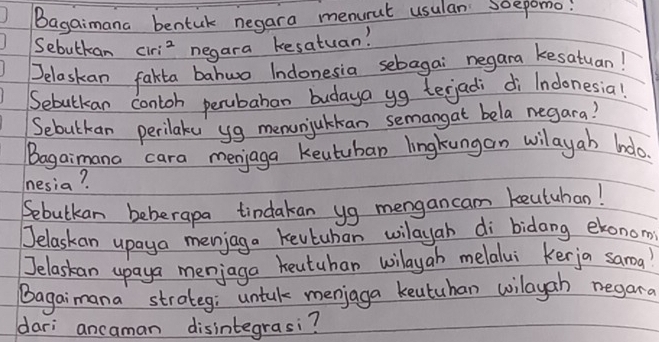 Bagaimana bentuk negara menurut usulan Soepomo!
Sebutkan ciri² negara kesatuan!
Jelaskan fakta bahwa Indonesia sebagai negara kesatuan!
Sebutkan contoh perubahan budaya yg terjadi di Indonesia!
Sebutkan perilaku yg menunjukkan semangat bela negara!
Bagaimana cara menjaga keutuhan lingkungan wilayah Indo-
nesia?
Sebutkan beberapa tindakan yg mengancam keutuhan!
Jelaskan upaya menjaga keutuhan wilayah di bidang ekonomi
Jelaskan upaya menjaga keutuhan wilayah melalui kerja sama!
Bagaimana strategi untuk menjaga keutuhan wilayah negara
dari ancaman disintegrasi?